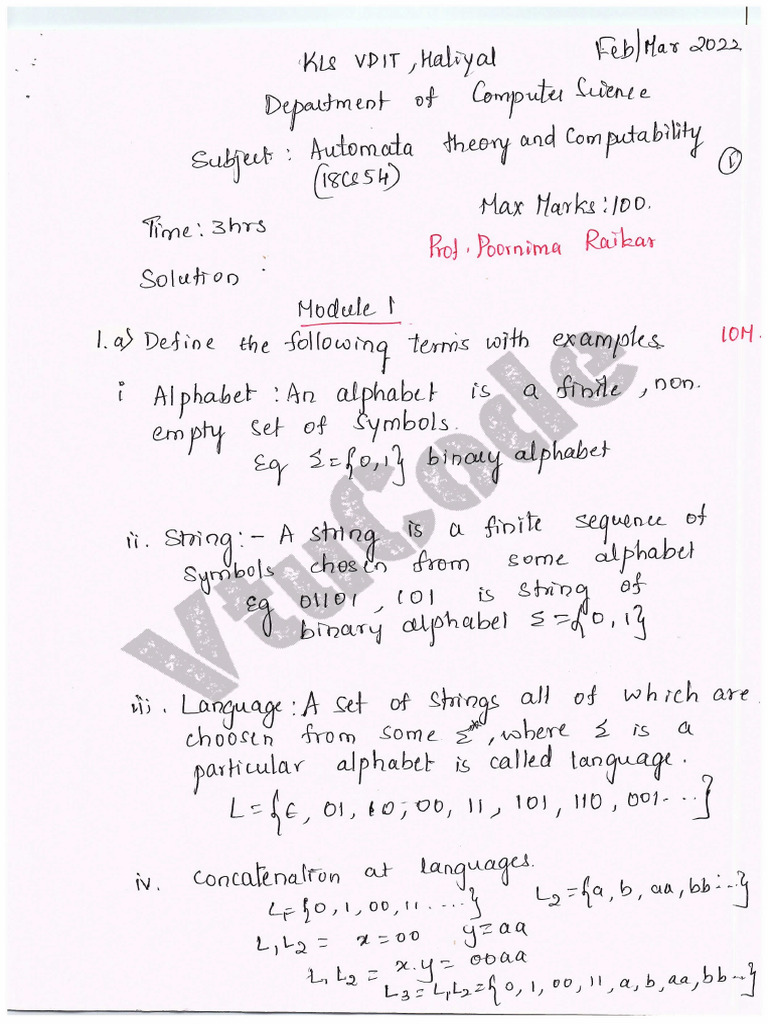 Feb/Mar 2022
KLS VDIT, Haliyal
Department of Computer Science
Subject : Automata theory and Computability
(18CS54)
①
Max Marks:100.
Time: 3hrs
Prof. Poornima Raikar
Solution :
Module 1
1.a) Define the following terms with examples 10M.
i Alphabet : An alphabet is a finite, non.
empty set of symbols.
Eg Σ={0,1} binary alphabet
ii. String:- A string is a finite sequence of
symbols chosen from some alphabet
Eg 01101, 101 is string of
binary alphabel Σ={0,1}
iii. Language: A set of strings all of which are
choosen from some Σ*, where Σ is a
particular alphabet is called language.
L={ε, 01, 10, 00, 11, 101, 110, 001...}
iv. Concatenation at languages.
L₁={0,1,00,11....} L₂={a, b, aa, bb...}
L₁L₂ = x=00 y=aa
L₁L₂ = x.y= 00aa
L₃=L₁L₂={0,1,00,11,a,b,aa,bb...}
VtuCode